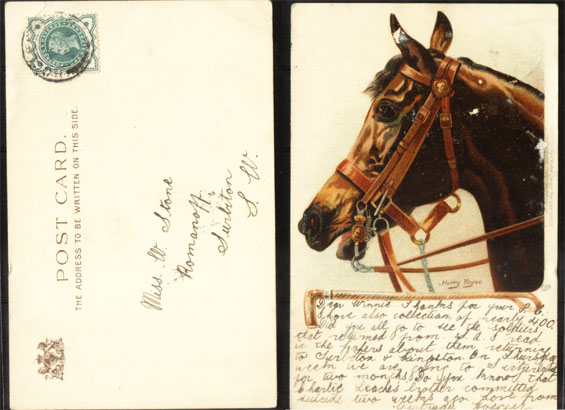 POST CARD.
THE ADDRESS TO BE WRITTEN ON THIS SIDE.
Miss. W. Stone
Romanoff
Surbiton
S. W.
Harry Payne
Dear Winnie Thanks for your P.C.
I have also collection of nearly 400.
Did you all go to see the soldiers
that returned from S.A. I read
in the papers about them returning
to Surbiton & Kingston On Thursday
week we are going to
for two months Do you know that
Charlie brother committed
suicide two weeks ago Love from
Gertrude